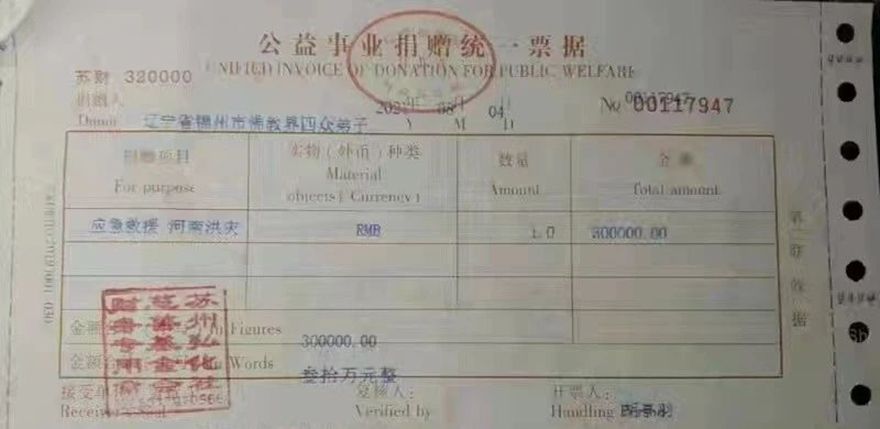 公益事业捐赠统一票据
UNIFIED INVOICE OF DONATION FOR PUBLIC WELFARE
苏财 320000
捐赠人
Donor 辽宁省锦州市佛教界四众弟子 2021年 08月 04日
Y M D
No 00117947
00117947
捐赠项目
For purpose
实物(外币)种类
Material
objects( Currency)
数量
Amount
金额
Total amount
应急救援 河南洪灾 RMB 1.0 300000.00
In Figures
300000.00
In Words
叁拾万元整
苏州弘化社
慈善基金会
财务专用章
接受单位
Receiver's Seal
复核人:
Verified by
开票人:
Handling
第二联 收据